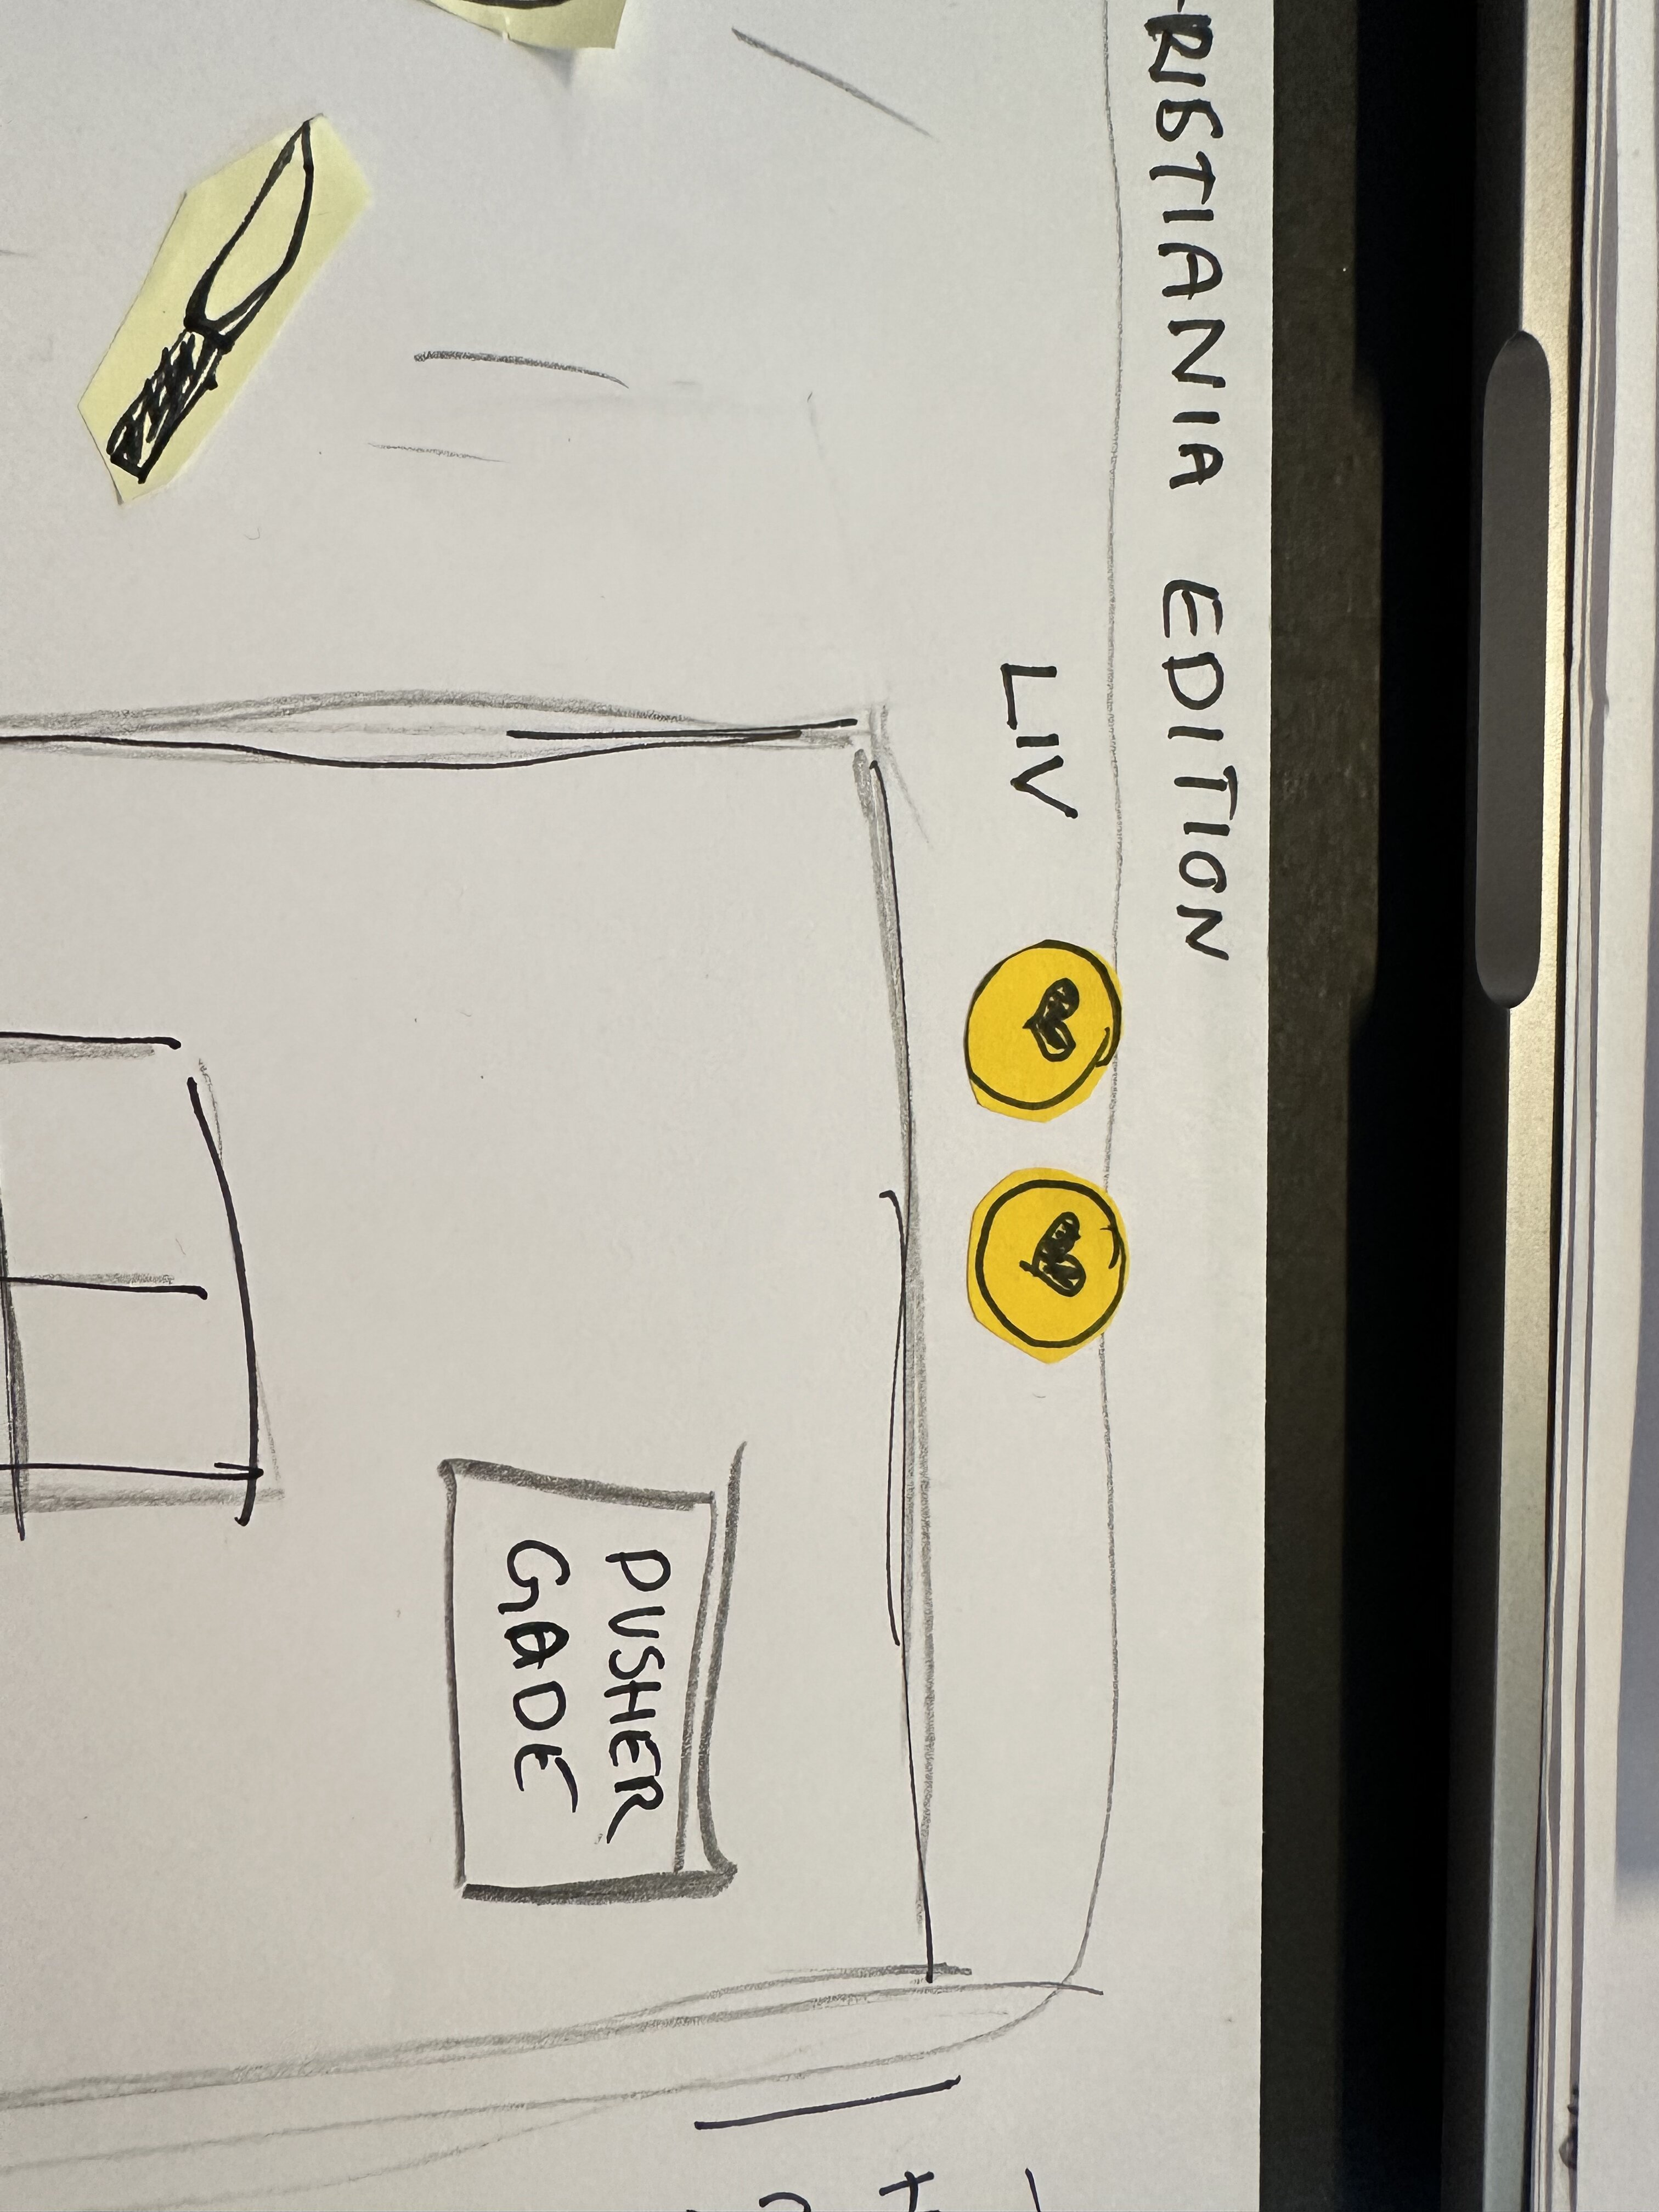 RISTIANIA EDITION
LIV
PUSHER
GADE